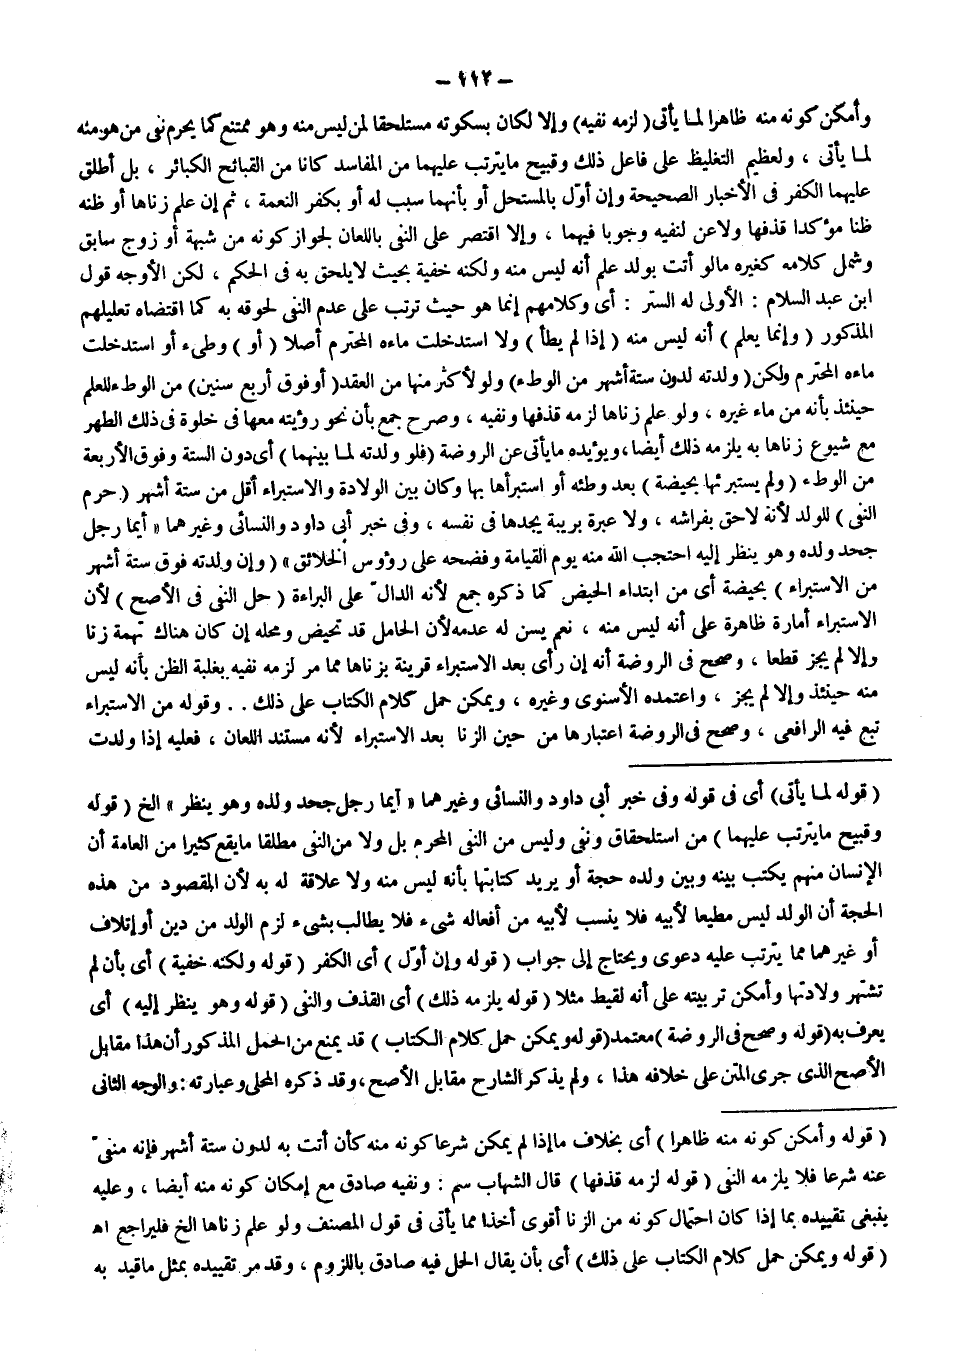 – ١١٢ –
وأمكن كونه منه ظاهرا لما يأتى ( لزمه نفيه) وإلا لكان بسكوته مستلحقا لمن ليس منه وهو ممتنع كما يحرم نفى من هو منه
لما يأتى ، ولعظيم التغليظ على فاعل ذلك وقبيح مايترتب عليهما من المفاسد كانا من القبائح الكبائر ، بل أطلق
عليهما الكفر فى الأخبار الصحيحة وإن أوّل بالمستحل أو بأنهما سبب له أو بكفر النعمة ، ثم إن علم زناها أو ظنه
ظنا مؤكدا قذفها ولاعن لنفيه وجوبا فيهما ، وإلا اقتصر على النفى باللعان لجواز كونه من شبهة أو زوج سابق
وشمل كلامه كغيره مالو أتت بولد علم أنه ليس منه ولكنه خفية بحيث لايلحق به فى الحكم ، لكن الأوجه قول
ابن عبد السلام : الأولى له الستر : أى وكلامهم إنما هو حيث ترتب على عدم النفى لحوقه به كما اقتضاه تعليلهم
المذكور ( وإنما يعلم ) أنه ليس منه ( إذا لم يطأ ) ولا استدخلت ماءه المحترم أصلا ( أو ) وطىء أو استدخلت
ماءه المحترم ولكن( ولدته لدون ستة أشهر من الوطء) ولو لأكثر منها من العقد( أوفوق أربع سنين) من الوطء للعلم
حينئذ بأنه من ماء غيره ، ولو علم زناها لزمه قذفها ونفيه ، وصرح جمع بأن نحو رؤيته معها فى خلوة فى ذلك الطهر
مع شيوع زناها به يلزمه ذلك أيضا،ويؤيده مايأتى عن الروضة (فلو ولدته لما بينهما ) أى دون الستة وفوق الأربعة
من الوطء ( ولم يستبرئها بحيضة ) بعد وطئه أو استبرأها بها وكان بين الولادة والاستبراء أقل من ستة أشهر ( حرم
النفى ) للولد لأنه لاحق بفراشه ، ولا عبرة بريبة يجدها فى نفسه ، وفى خبر أبى داود والنسائى وغيرهما « أيما رجل
جحد ولده وهو ينظر إليه احتجب الله منه يوم القيامة وفضحه على رؤوس الخلائق » ( وإن ولدته فوق ستة أشهر
من الاستبراء ) بحيضة أى من ابتداء الحيض كما ذكره جمع لأنه الدالّ على البراءة ( حل النفى فى الأصح ) لأن
الاستبراء أمارة ظاهرة على أنه ليس منه ، نعم يسن له عدمه لأن الحامل قد تحيض ومحله إن كان هناك تهمة زنا
وإلا لم يجز قطعا ، وصحح فى الروضة أنه إن رأى بعد الاستبراء قرينة بزناها مما مر لزمه نفيه بغلبة الظن بأنه ليس
منه حينئذ وإلا لم يجز ، واعتمده الأسنوى وغيره ، ويمكن حمل كلام الكتاب على ذلك . . وقوله من الاستبراء
تبع فيه الرافعى ، وصحح فى الروضة اعتبارها من حين الزنا بعد الاستبراء لأنه مستند اللعان ، فعليه إذا ولدت
( قوله لما يأتى) أى فى قوله وفى خبر أبى داود والنسائى وغيرهما « أيما رجل جحد ولده وهو ينظر » الخ ( قوله
وقبيح مايترتب عليهما ) من استلحاق ونفى وليس من النفى المحرم بل ولا من النفى مطلقا مايقع كثيرا من العامة أن
الإنسان منهم يكتب بينه وبين ولده حجة أو يريد كتابتها بأنه ليس منه ولا علاقة له به لأن المقصود من هذه
الحجة أن الولد ليس مطيعا لأبيه فلا ينسب لأبيه من أفعاله شىء فلا يطالب بشىء لزم الولد من دين أو إتلاف
أو غيرهما مما يترتب عليه دعوى ويحتاج إلى جواب ( قوله وإن أوّل ) أى الكفر ( قوله ولكنه خفية ) أى بأن لم
تشتهر ولادتها وأمكن تربيته على أنه لقيط مثلا ( قوله يلزمه ذلك ) أى القذف والنفى ( قوله وهو ينظر إليه ) أى
يعرف به(قوله وصحح فى الروضة )معتمد(قوله ويمكن حمل كلام الكتاب ) قد يمنع من الحمل المذكور أن هذا مقابل
الأصح الذى جرى المتن على خلافه هذا ، ولم يذكر الشارح مقابل الأصح،وقد ذكره المحلى وعبارته : والوجه الثانى
( قوله وأمكن كونه منه ظاهرا ) أى بخلاف ماإذا لم يمكن شرعا كونه منه كأن أتت به لدون ستة أشهر فإنه منفىّ
عنه شرعا فلا يلزمه النفى ( قوله لزمه قذفها ) قال الشهاب سم : ونفيه صادق مع إمكان كونه منه أيضا ، وعليه
ينبغى تقييده بما إذا كان احتمال كونه من الزنا أقوى أخذا مما يأتى فى قول المصنف ولو علم زناها الخ فليراجع اه
( قوله ويمكن حمل كلام الكتاب على ذلك) أى بأن يقال الحل فيه صادق باللزوم ، وقد مر تقييده بمثل ماقيد به